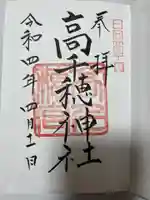 奉拝
高千穂神社
令和四年四月十一日